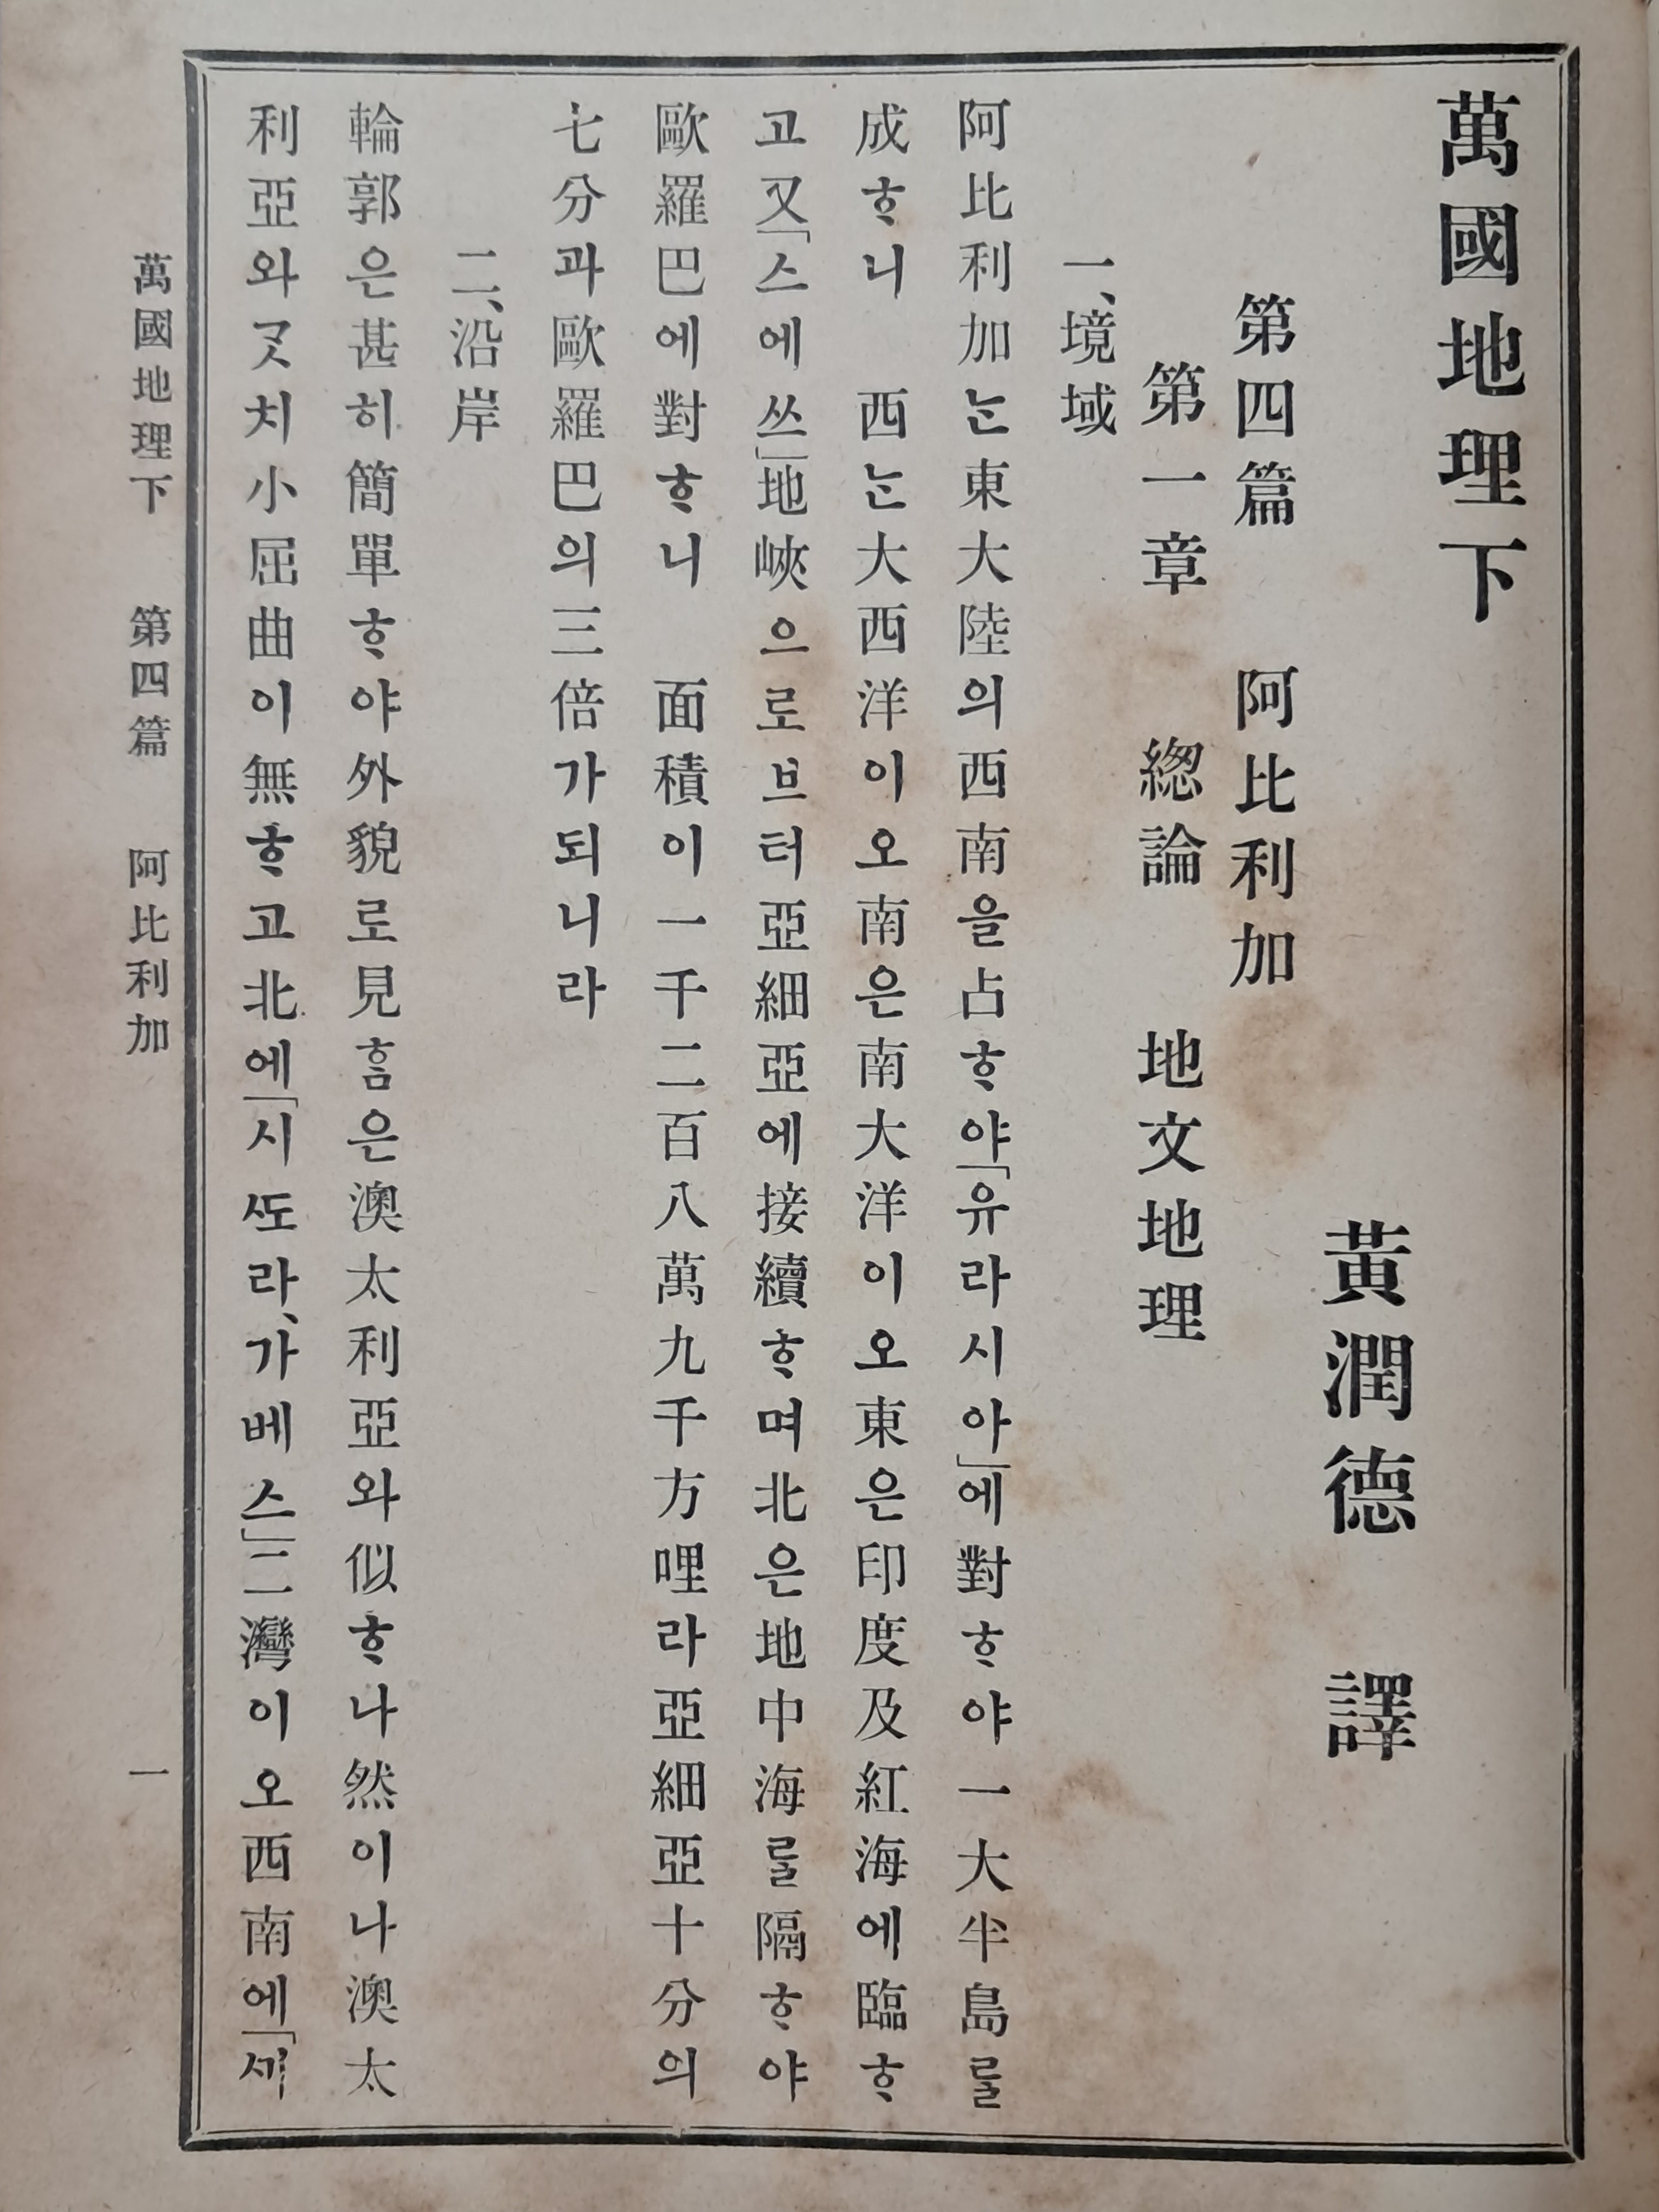 萬國地理下
黃潤德 譯
第四篇 阿比利加
第一章 總論 地文地理
一、境域
阿比利加ᄂᆞᆫ東大陸의西南을占ᄒᆞ야「유라시아」에對ᄒᆞ야一大半島ᄅᆞᆯ
成ᄒᆞ니 西ᄂᆞᆫ大西洋이오南은南大洋이오東은印度及紅海에臨ᄒᆞ
고又「스에쓰」地峽으로브터亞細亞에接續ᄒᆞ며北은地中海ᄅᆞᆯ隔ᄒᆞ야
歐羅巴에對ᄒᆞ니 面積이一千二百八萬九千方哩라亞細亞十分의
七分과歐羅巴의三倍가되니라
二、沿岸
輪郭은甚히簡單ᄒᆞ야外貌로見ᄒᆞᆷ은澳太利亞와似ᄒᆞ나然이나澳太
利亞와ᄀᆞᆺ치小屈曲이無ᄒᆞ고北에「시ᄯᅩ라、가베스」二灣이오西南에「세
萬國地理下 第四篇 阿比利加 一